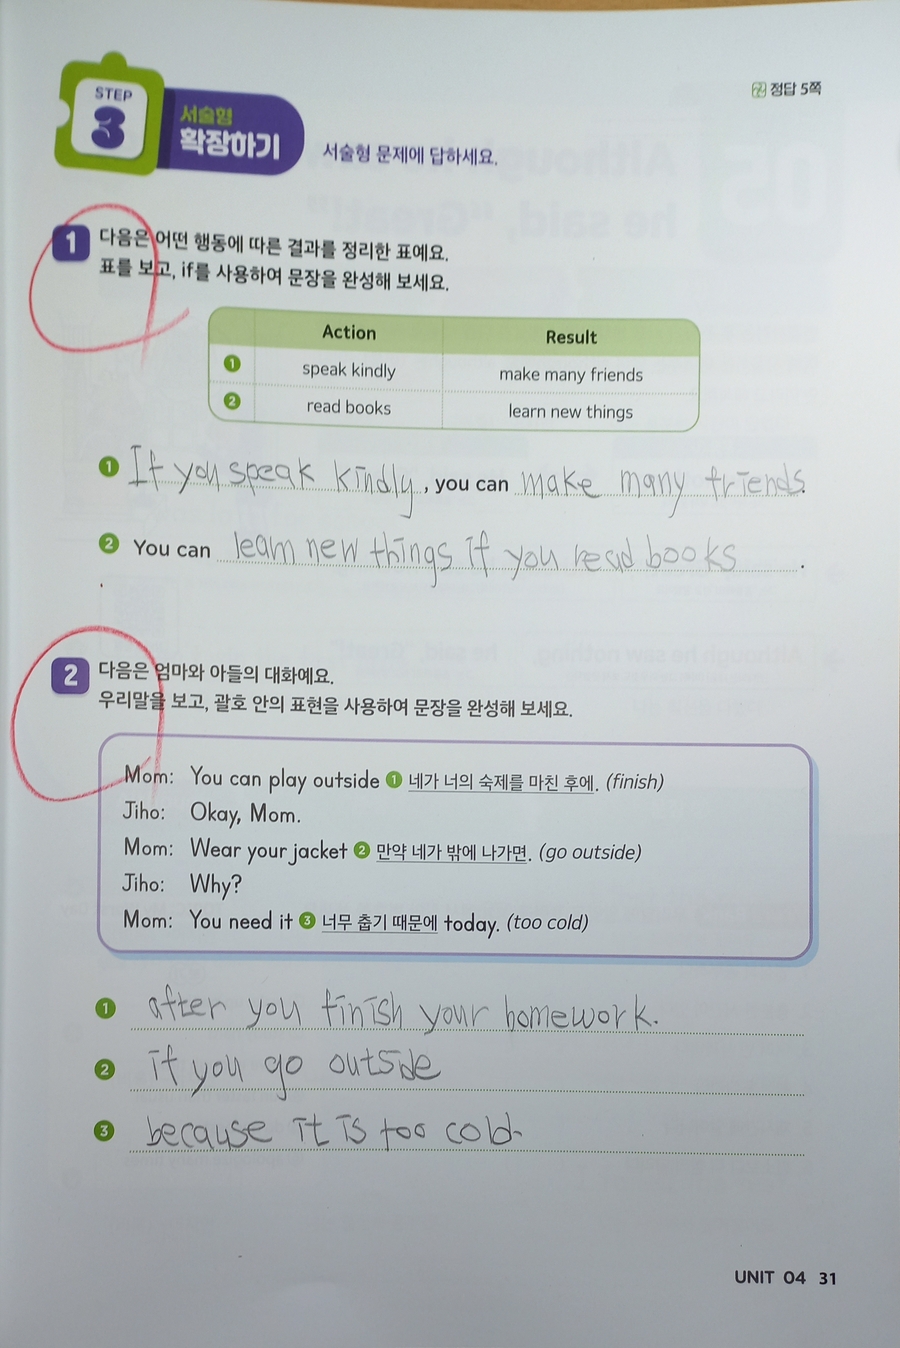 STEP
3
서술형
확장하기
서술형 문제에 답하세요.
정답 5쪽
1 다음은 어떤 행동에 따른 결과를 정리한 표예요.
표를 보고, if를 사용하여 문장을 완성해 보세요.
Action Result
1 speak kindly make many friends
2 read books learn new things
1 If you speak kindly, you can make many friends.
2 You can learn new things if you read books.
2 다음은 엄마와 아들의 대화예요.
우리말을 보고, 괄호 안의 표현을 사용하여 문장을 완성해 보세요.
Mom: You can play outside 1 네가 너의 숙제를 마친 후에. (finish)
Jiho: Okay, Mom.
Mom: Wear your jacket 2 만약 네가 밖에 나가면. (go outside)
Jiho: Why?
Mom: You need it 3 너무 춥기 때문에 today. (too cold)
1 after you finish your homework.
2 if you go outside
3 because it is too cold.
UNIT 04 31